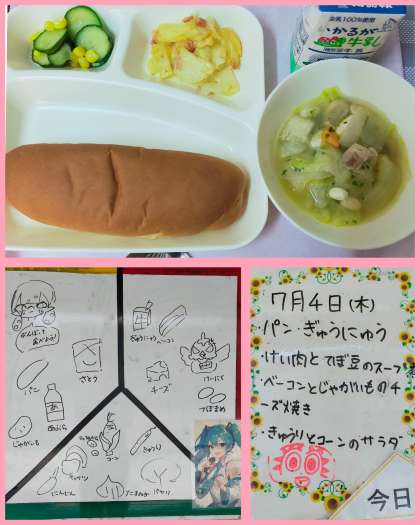 生乳100%使用
いかるが
牛乳
がんばって
たべよう!
さとう
パン
あぶら
じゃがいも
ぎゅうにゅう
ベーコン
チーズ
けいにく
てぼまめ
コーン
きゅうり
キャベツ
にんじん
たまねぎ
パセリ
7月4日(木)
パン・ぎゅうにゅう
・けい肉とてぼ豆のスープ煮
・ベーコンとじゃがいものチ
ーズ焼き
・きゅうりとコーンのサラダ
今日